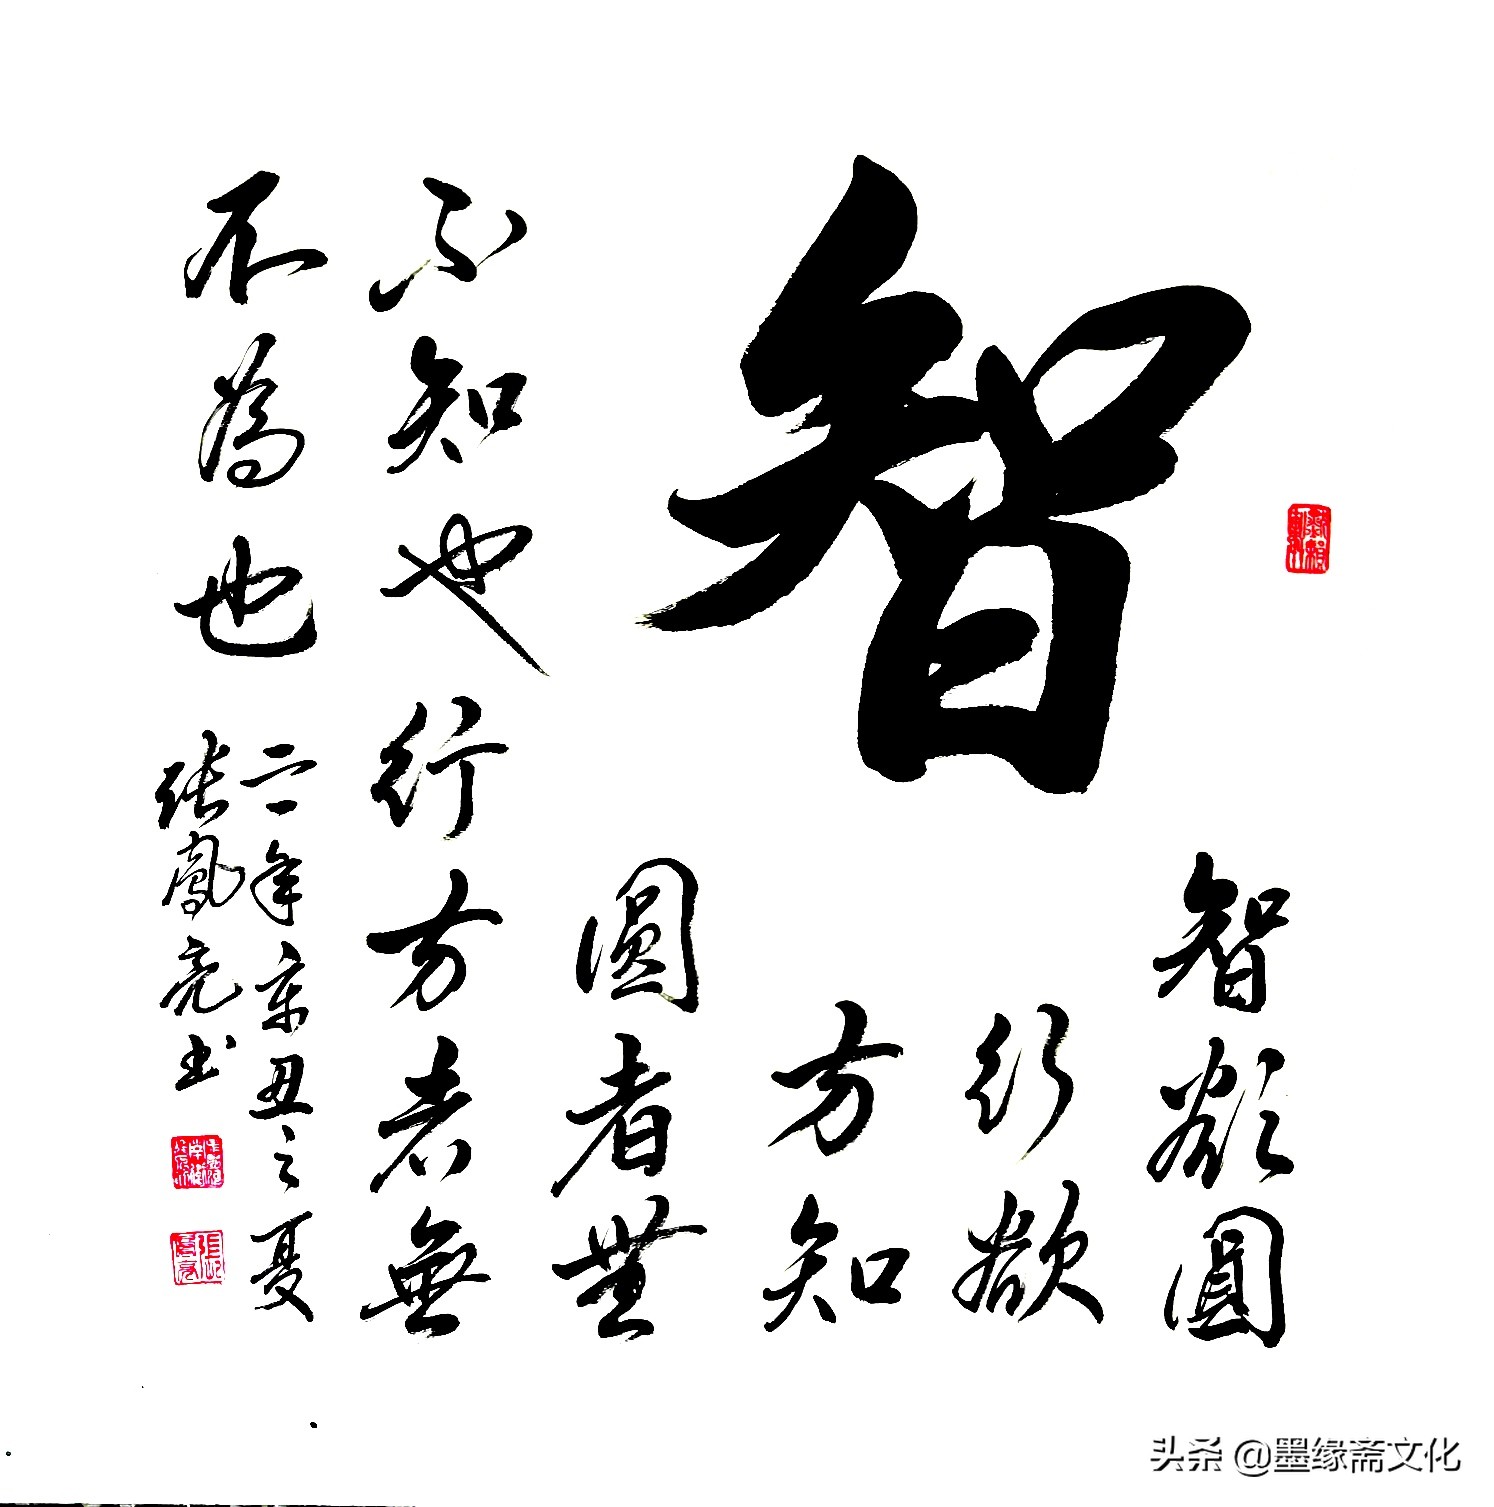 智
智欲圓
行欲
方知
圓者無
不知也行方者無
不為也
二一年辛丑之夏
張鳳亮书
头条 @墨缘斋文化